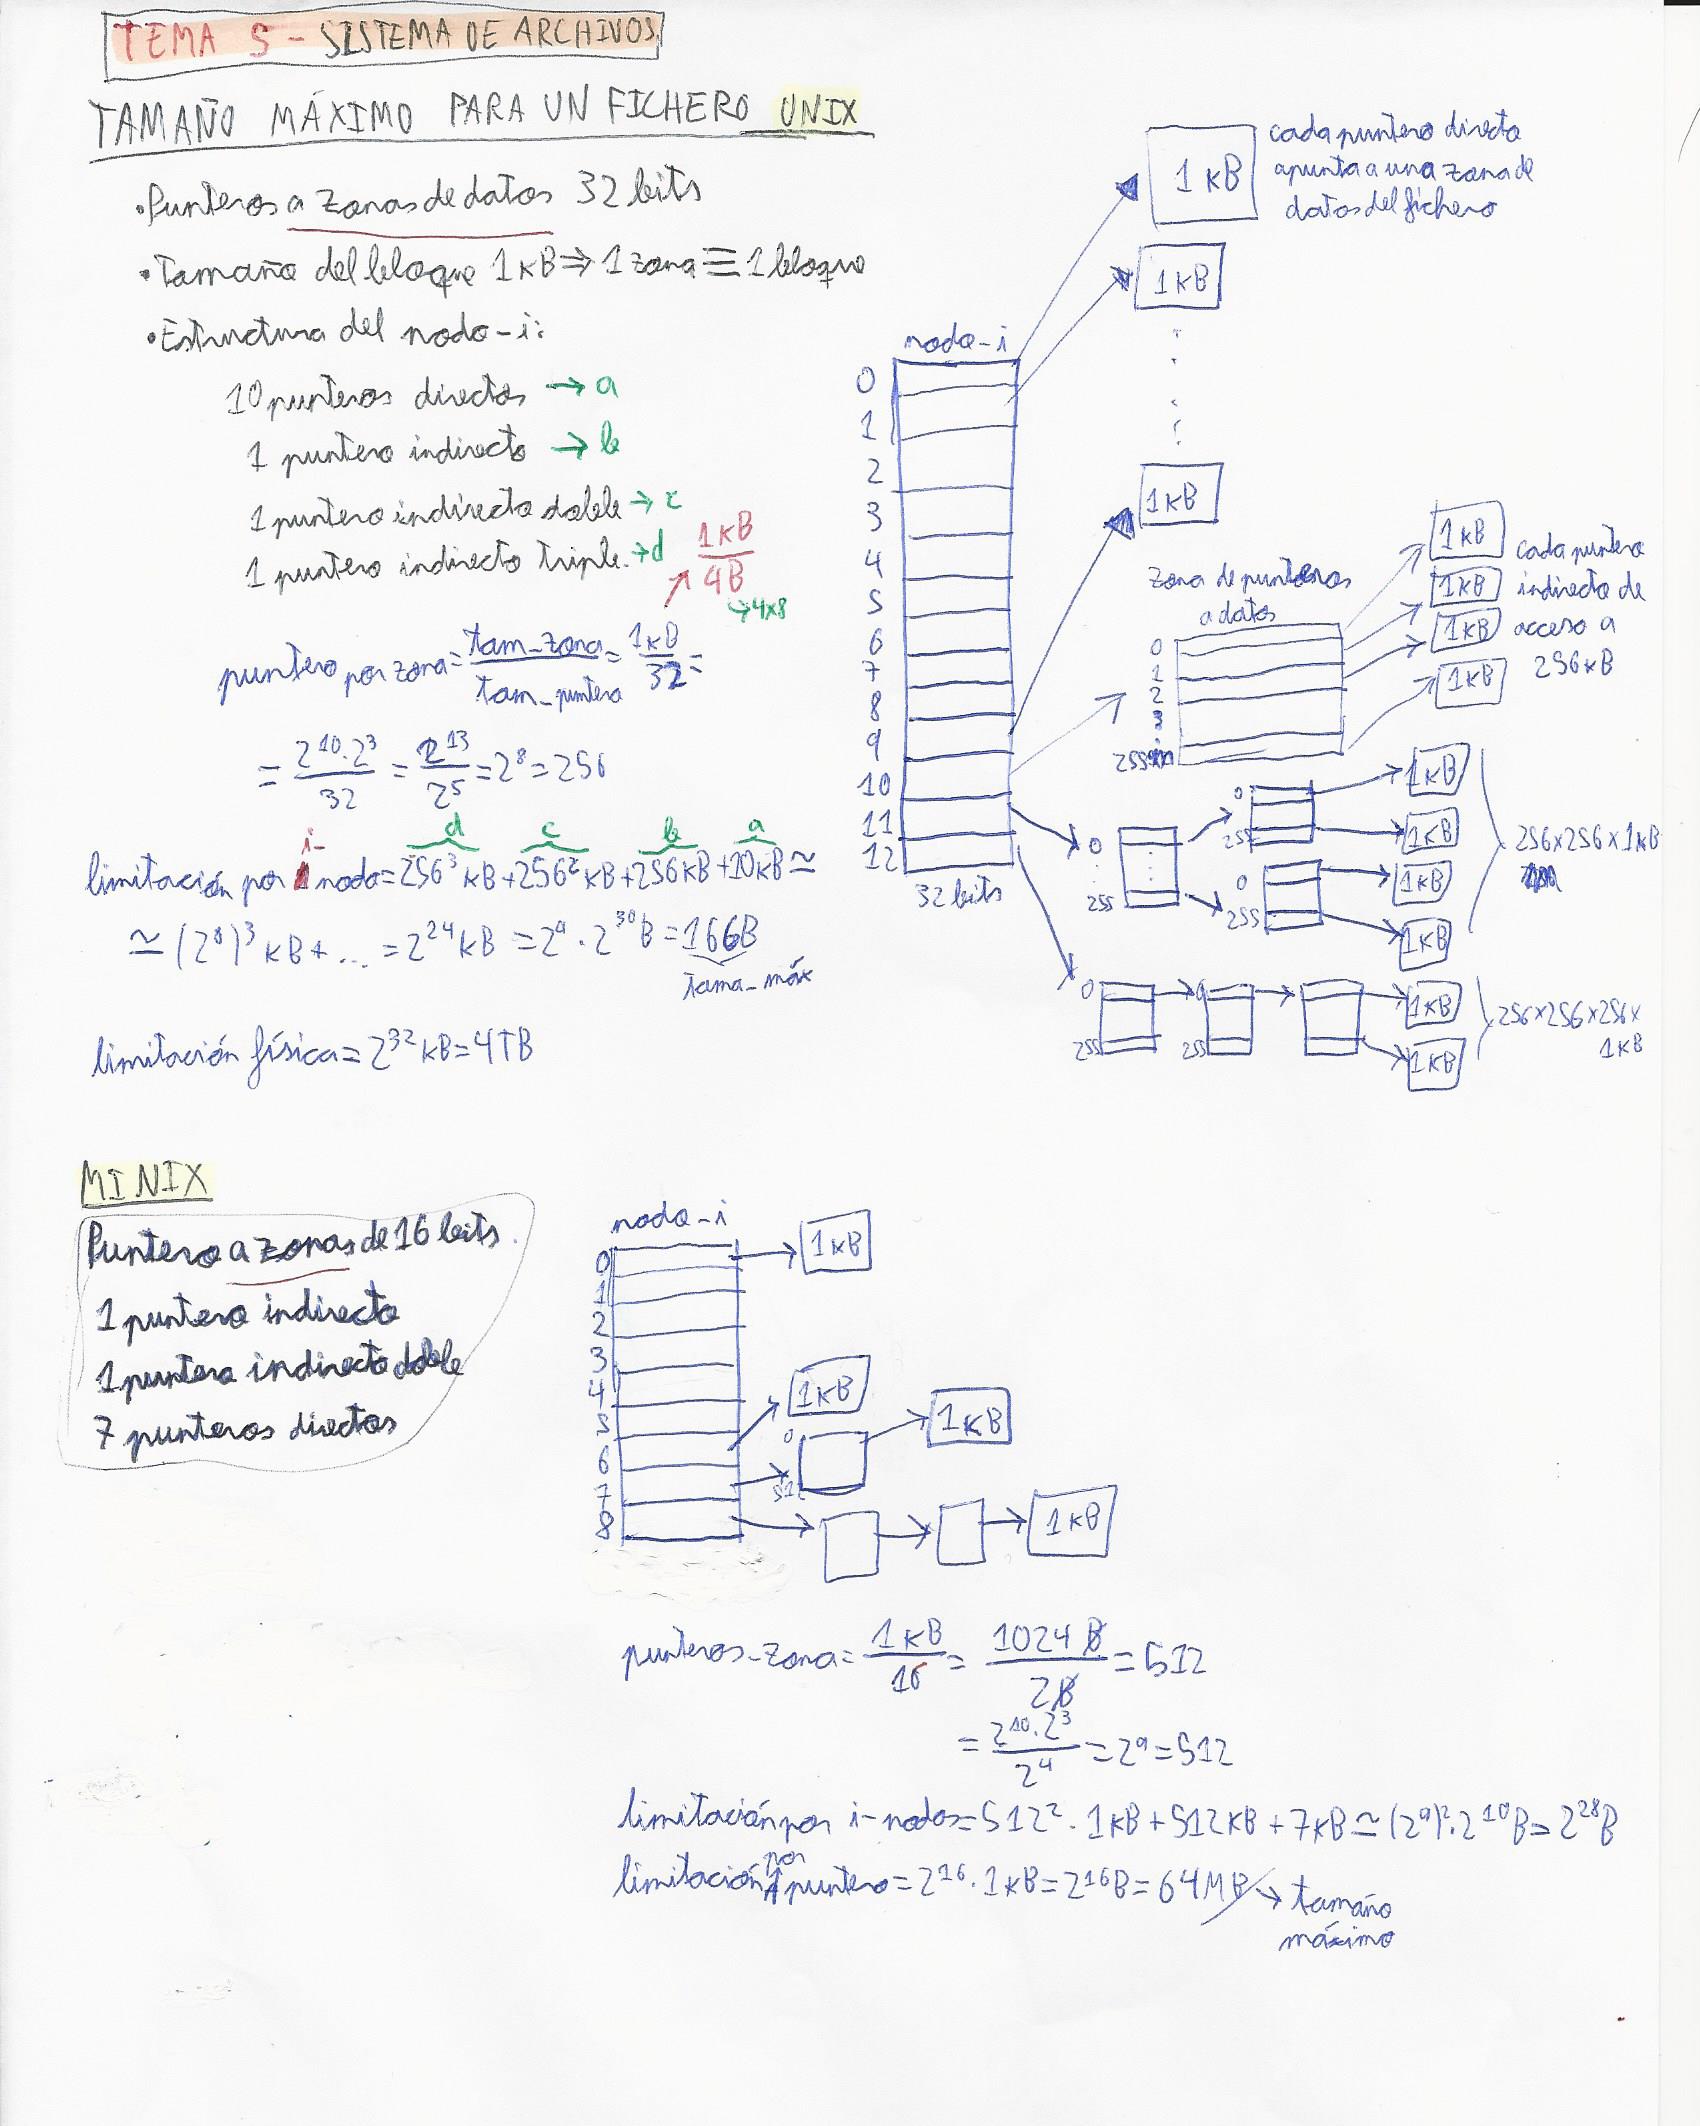 TEMA 5 - SISTEMA DE ARCHIVOS
TAMAÑO MÁXIMO PARA UN FICHERO UNIX
•Punteros a zonas de datos 32 bits
•Tamaño del bloque 1kB ⇒ 1 zona ≡ 1 bloque
•Estructura del nodo-i:
10 punteros directos → a
1 puntero indirecto → b
1 puntero indirecto doble → c
1 puntero indirecto triple. → d
1kB / 4B
↳ 4x8
puntero por zona = tam_zona / tam_puntero = 1kB / 32 =
= 2^10·2^3 / 32 = 2^13 / 2^5 = 2^8 = 256
d c b a
limitación por i-nodo = 256^3 kB + 256^2 kB + 256kB + 10kB ≃
≃ (2^8)^3 kB + ... = 2^24 kB = 2^4 · 2^30 B = 16GB
tama_máx
limitación física = 2^32 kB = 4TB
nodo-i
0
1
2
3
4
5
6
7
8
9
10
11
12
32 bits
1kB
cada puntero directo
apunta a una zona de
datos del fichero
1kB
1kB
zona de punteros
a datos
0
1
2
3
255
1kB
1kB
1kB
1kB
cada puntero
indirecto de
acceso a
256kB
0
255
0
255
0
255
1kB
1kB
1kB
1kB
256x256x1kB
0
255
0
255
1kB
1kB
256x256x256x
1kB
MINIX
Puntero a zonas de 16 bits.
1 puntero indirecto
1 puntero indirecto doble
7 punteros directos
nodo-i
0
1
2
3
4
5
6
7
8
1kB
1kB
0
512
1kB
1kB
punteros_zona = 1kB / 16 = 1024 B / 2B = 512
= 2^10·2^3 / 2^4 = 2^9 = 512
limitación por i-nodos = 512^2 · 1kB + 512kB + 7kB ≃ (2^9)^2·2^10 B = 2^28 B
limitación por puntero = 2^16 · 1kB = 2^16 B = 64MB → tamaño
máximo